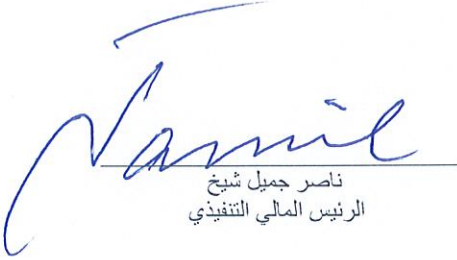 ناصر جميل شيخ
الرئيس المالي التنفيذي